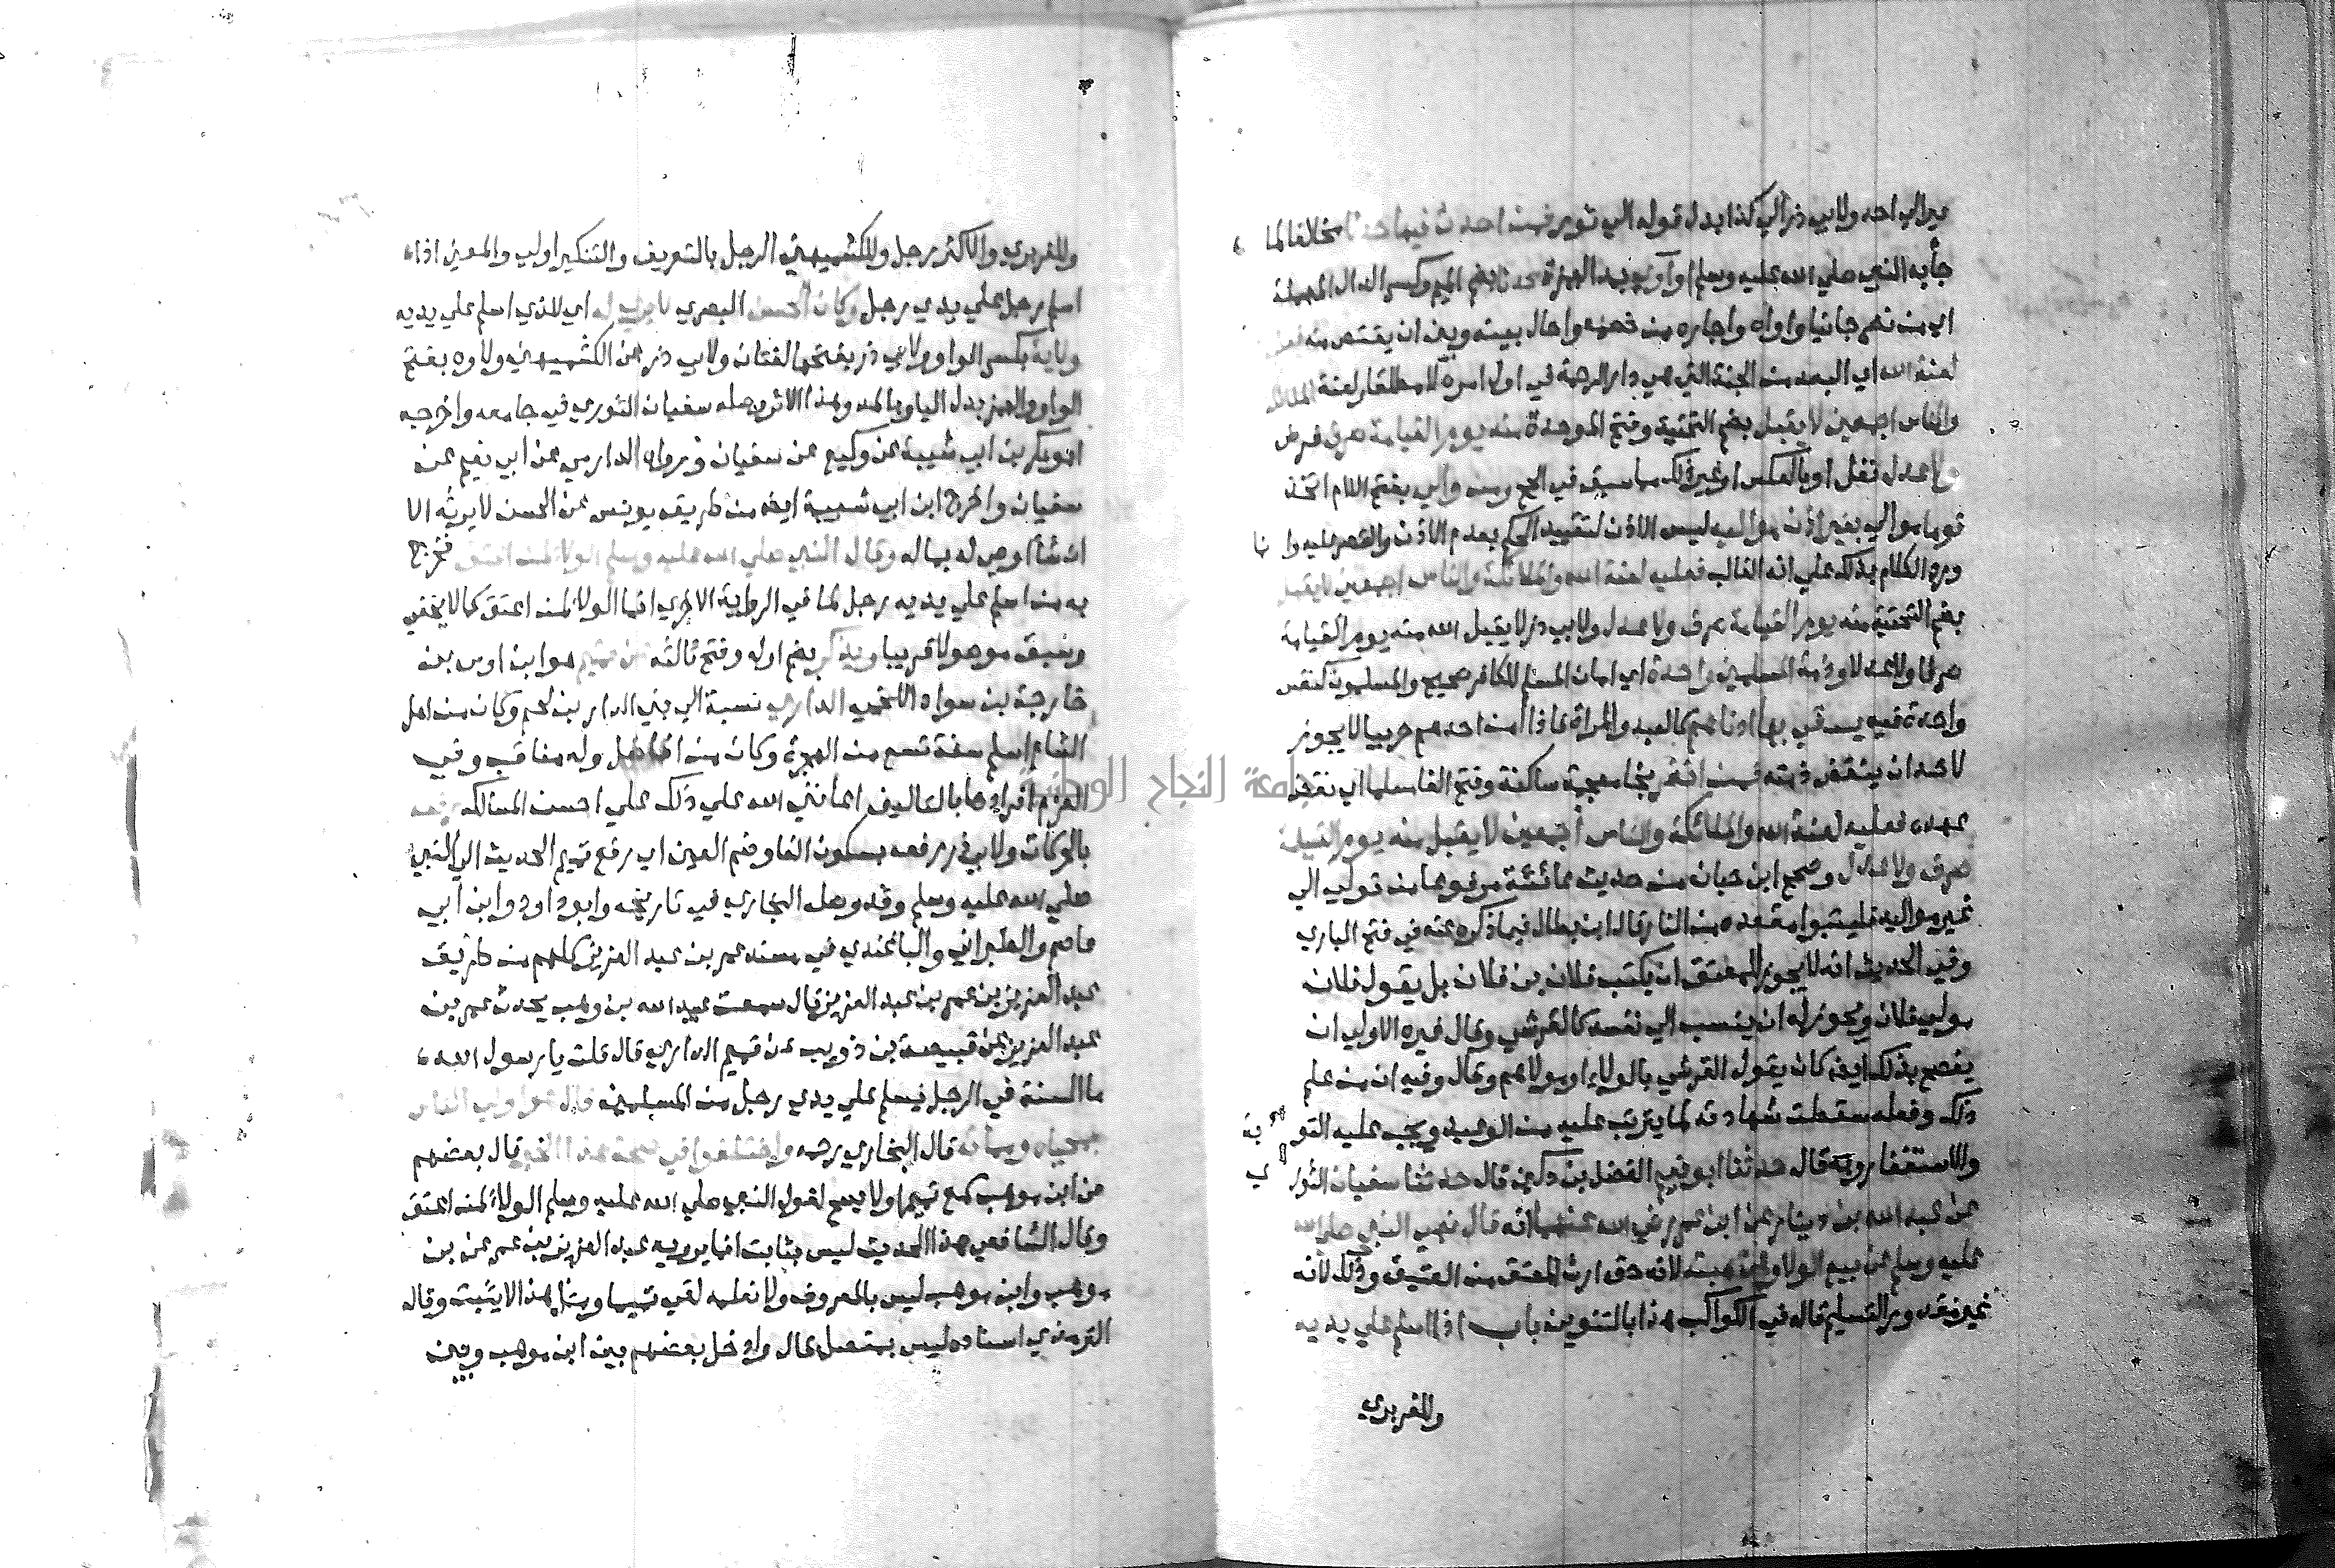 عير الى احد ولابي ذر الى كذا بدل قوله الى ثور فمن احدث فيها حدثا مخالفا لما
جأ به النبي صلي الله عليه وسلم او آوي بمد الهمزة محدثا بضم الميم وكسر الدال المهملة
اي من نصر جانيا واواه واجاره من خصمه واحال بينه وبين ان يقتص منه فعليه
لعنة الله اي البعد من الجنة التي هي دار الرحمة في اول امره لا مطلقا ولعنة الملائكة
والناس اجمعين لا يقبل بضم التحتية وفتح الموحدة منه يوم القيامة صرف فرض
ولا عدل نفل او بالعكس او غير ذلك مما سبق في الحج ومن والي بفتح اللام اتخذ
قوما موالي بغير اذن مواليه ليس الاذن لتقييد الحكم بعدم الاذن والقصر عليه وانما
ورد الكلام بذلك علي انه الغالب فعليه لعنة الله والملائكة والناس اجمعين لا يقبل
بضم التحتية منه يوم القيامة صرف ولا عدل ولابي ذر لا يقبل الله منه يوم القيامة
صرفا ولا عدلا وذمة المسلمين واحدة اي امان المسلم للكافر صحيح والمسلمون كنفس
واحدة فيه يسعي بها ادناهم كالعبد والمراة فاذا امن احدهم حربيا لا يجوز
لاحد ان ينقض ذمته فمن اخفر بخا معجمة ساكنة وفتح الفا مسلما اي نقض
عهده فعليه لعنة الله والملائكة والناس اجمعين لا يقبل منه يوم القيامة
صرف ولا عدل وصحح ابن حبان من حديث عائشة مرفوعا من تولي الى
غير مواليه فليتبوا مقعده من النار قال ابن بطال فيما ذكره عنه في فتح الباري
وفي الحديث انه لا يجوز للمعتق ان يكتب فلان بن فلان بل يقول فلان
مولي فلان ويجوز له ان ينسب الي نفسه كالقرشي وقال غيره الاولي ان
يفصح بذلك ايضا كان يقول القرشي بالولاء او مولاهم وقال وفيه ان من علم
ذلك وفعله سقطت شهادته لما يترتب عليه من الوعيد ويجب عليه التوبة
والاستغفار وبه قال حدثنا ابو نعيم الفضل بن دكين قال حدثنا سفيان الثوري
عن عبد الله بن دينار عن ابن عمر رضي الله عنهما انه قال نهي النبي صلي الله
عليه وسلم عن بيع الولا وعن هبته لانه حق ارث المعتق من العتيق وذلك لانه
غير مقدور التسليم قاله في الكواكب هذا بالتنوين باب اذا اسلم علي يديه
وللفربري
وللفربري والاكثر رجل وللكشميهني الرجل بالتعريف والتنكير اولي والمعني اذا
اسلم رجل علي يدي رجل وكان الحسن البصري لا يري له اي للذي اسلم علي يديه
ولاية بكسر الواو ولابي ذر بفتحها لغتان ولابي ذر عن الكشميهني ولاوه بفتح
الواو والهمز بدل اليا وبالمد وهذا الاثر وصله سفيان الثوري في جامعه واخرجه
ابو بكر بن ابي شيبة عن وكيع عن سفيان ورواه الدارمي عن ابي نعيم عن
سفيان واخرج ابن ابي شيبة ايضا من طريق يونس عن الحسن لا يرثه الا
ان شأ اوصي له بماله وقال النبي صلي الله عليه وسلم الولا لمن اعتق فخرج
به من اسلم علي يديه رجل لما في الرواية الاخري انما الولا لمن اعتق كما لا يخفي
وسبق موصولا قريبا ويذكر بضم اوله وفتح ثالثه عن تميم هو ابن اوس بن
خارجة بن سواد اللخمي الداري نسبة الي بني الدار بن لخم وكان من اهل
الشام اسلم سنة تسع من الهجرة وكان من افاضل وله مناقب وفي
العزم افرادها بالتاليف اعانني الله علي ذلك علي احسن المسالك رفعه
بالحركات ولابي ذر رفعه بسكون الفا وضم العين اي رفع تميم الحديث الي النبي
صلي الله عليه وسلم وقد وصله البخاري في تاريخه وابو داود وابن ابي
عاصم والطبراني والباغندي في مسند عمر بن عبد العزيز كلهم من طريق
عبد العزيز بن عمر بن عبد العزيز قال سمعت عبد الله بن وهب يحدث عمر بن
عبد العزيز عن قبيصة بن ذويب عن تميم الداري قال قلت يا رسول الله
ما السنة في الرجل فيسلم علي يدي رجل من المسلمين قال هو اولي الناس
بمحياه ومماته قال البخاري رحمه واختلفوا في صحة هذا الخبر قال بعضهم
عن ابن موهب سمع تميما ولا يصح لقول النبي صلي الله عليه وسلم الولا لمن اعتق
وقال الشافعي هذا الحديث ليس بثابت انما يرويه عبد العزيز بن عمر عن بن
موهب وابن موهب ليس بالمعروف ولا نعلمه لقي تميما ومثل هذا لا يثبت وقال
الترمذي اسناده ليس بمتصل قال وادخل بعضهم بين ابن موهب وبين
جامعة النجاح الوطنية